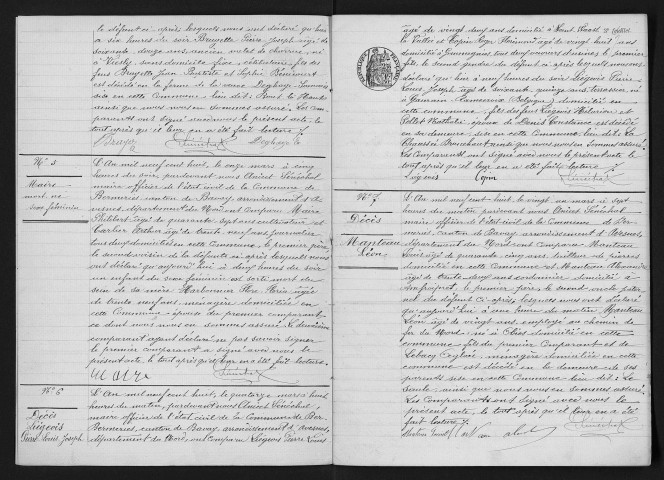 le défunt ci-après lesquels nous ont déclaré que hier
à six heures du soir Bruyette Pierre Joseph âgé de
soixante douze ans, ancien valet de charrue, né
à Viesly, sans domicile fixe, célibataire, fils des
feus Bruyette Jean Baptiste et Sophie Bénicourt
est décédé en la ferme de la veuve Deghaye Louvion
sise en cette commune, lieu dit: Bout
ainsi que nous nous en sommes assuré. Les com-
parants ont signé avec nous le présent acte, le
tout après qu'il leur en a été fait lecture.
N° 5
Maire
mort-né
sexe féminin
L'An mil neuf cent huit, le onze mars à cinq
heures du soir, pardevant nous Amicet Sénéchal
maire officier de l'état civil de la Commune de
Bermeries, canton de Bavay, arrondissement d'A-
vesnes, département du Nord ont comparu Maire
Philibert âgé de quarante sept ans cultivateur et
Carlier Arthur âgé de trente neuf ans journalier
tous deux domiciliés en cette commune, le premier père,
le second voisin de la défunte ci-après, lesquels nous
ont déclaré qu'aujourd'hui à deux heures du soir
un enfant du sexe féminin est sorti mort du
sein de sa mère Harbonnier Flore Maria âgée
de trente neuf ans, ménagère domiciliée en
cette Commune épouse du premier comparant
ce dont nous nous en sommes assuré. Le deuxième
comparant ayant déclaré ne pas savoir signer
le premier comparant a signé avec nous le
présent acte, le tout après qu'il leur en a été fait lecture.
Maire
N° 6
Décès
Liégeois
Pierre Louis Joseph
L'An mil neuf cent huit, le quatorze mars huit
heures du matin, pardevant nous Amicet Sénéchal
maire officier de l'état civil de la Commune de Ber-
Bermeries, canton de Bavay, arrondissement d'Avesnes,
département du Nord, ont comparu Liégeois Pierre Louis
âgé de vingt deux ans domicilié à
et Copin Roger Florimond âgé de vingt huit ans
domicilié à Gommegnies, tous deux couvreurs d'ardoises, le premier
fils, le second gendre du défunt ci-après lesquels nous ont
déclaré qu'hier à neuf heures du soir Liégeois Pierre
Louis Joseph, âgé de soixante quinze ans, terrassier, né
à Gaurain-Ramecroix (Belgique) domicilié en
cette commune, fils des feus Liégeois Hilarion et
Pollet Mathilde, époux de Denis Constance est décédé
en sa demeure, sise en cette Commune lieu dit: La
Chaussée Brunehaut ainsi que nous nous en sommes assuré.
Les Comparants ont signé avec nous le présent acte le
tout après qu'il leur en a été fait lecture.
Liégeois Copin
N° 7
Décès
Manteau
Léon
L'An mil neuf cent huit, le vingt un mars à sept
heures du matin pardevant nous Amicet Sénéchal
maire officier de l'état civil de la commune de Ber-
meries, canton de Bavay, arrondissement d'Avesnes,
département du Nord ont comparu Manteau
Louis âgé de quarante cinq ans, tailleur de pierres
domicilié en cette commune et Manteau Alexandre
âgé de trente neuf ans cordonnier domicilié à
Amfroipret, le premier père, le second oncle pater-
nel du défunt ci-après, lesquels nous ont déclaré
qu'aujourd'hui à une heure du matin Manteau
Léon âgé de vingt ans, employé au chemin de
fer du Nord, né à Obies, domicilié en cette
commune fils du premier Comparant et de
Lebacq Ceylvie, ménagère domiciliée en cette
commune est décédé en la demeure de ses
parents sise en cette Commune lieu dit: Le
Saule, ainsi que nous nous en sommes assuré.
Les Comparants ont signé avec nous le
présent acte, le tout après qu'il leur en a été
fait lecture.